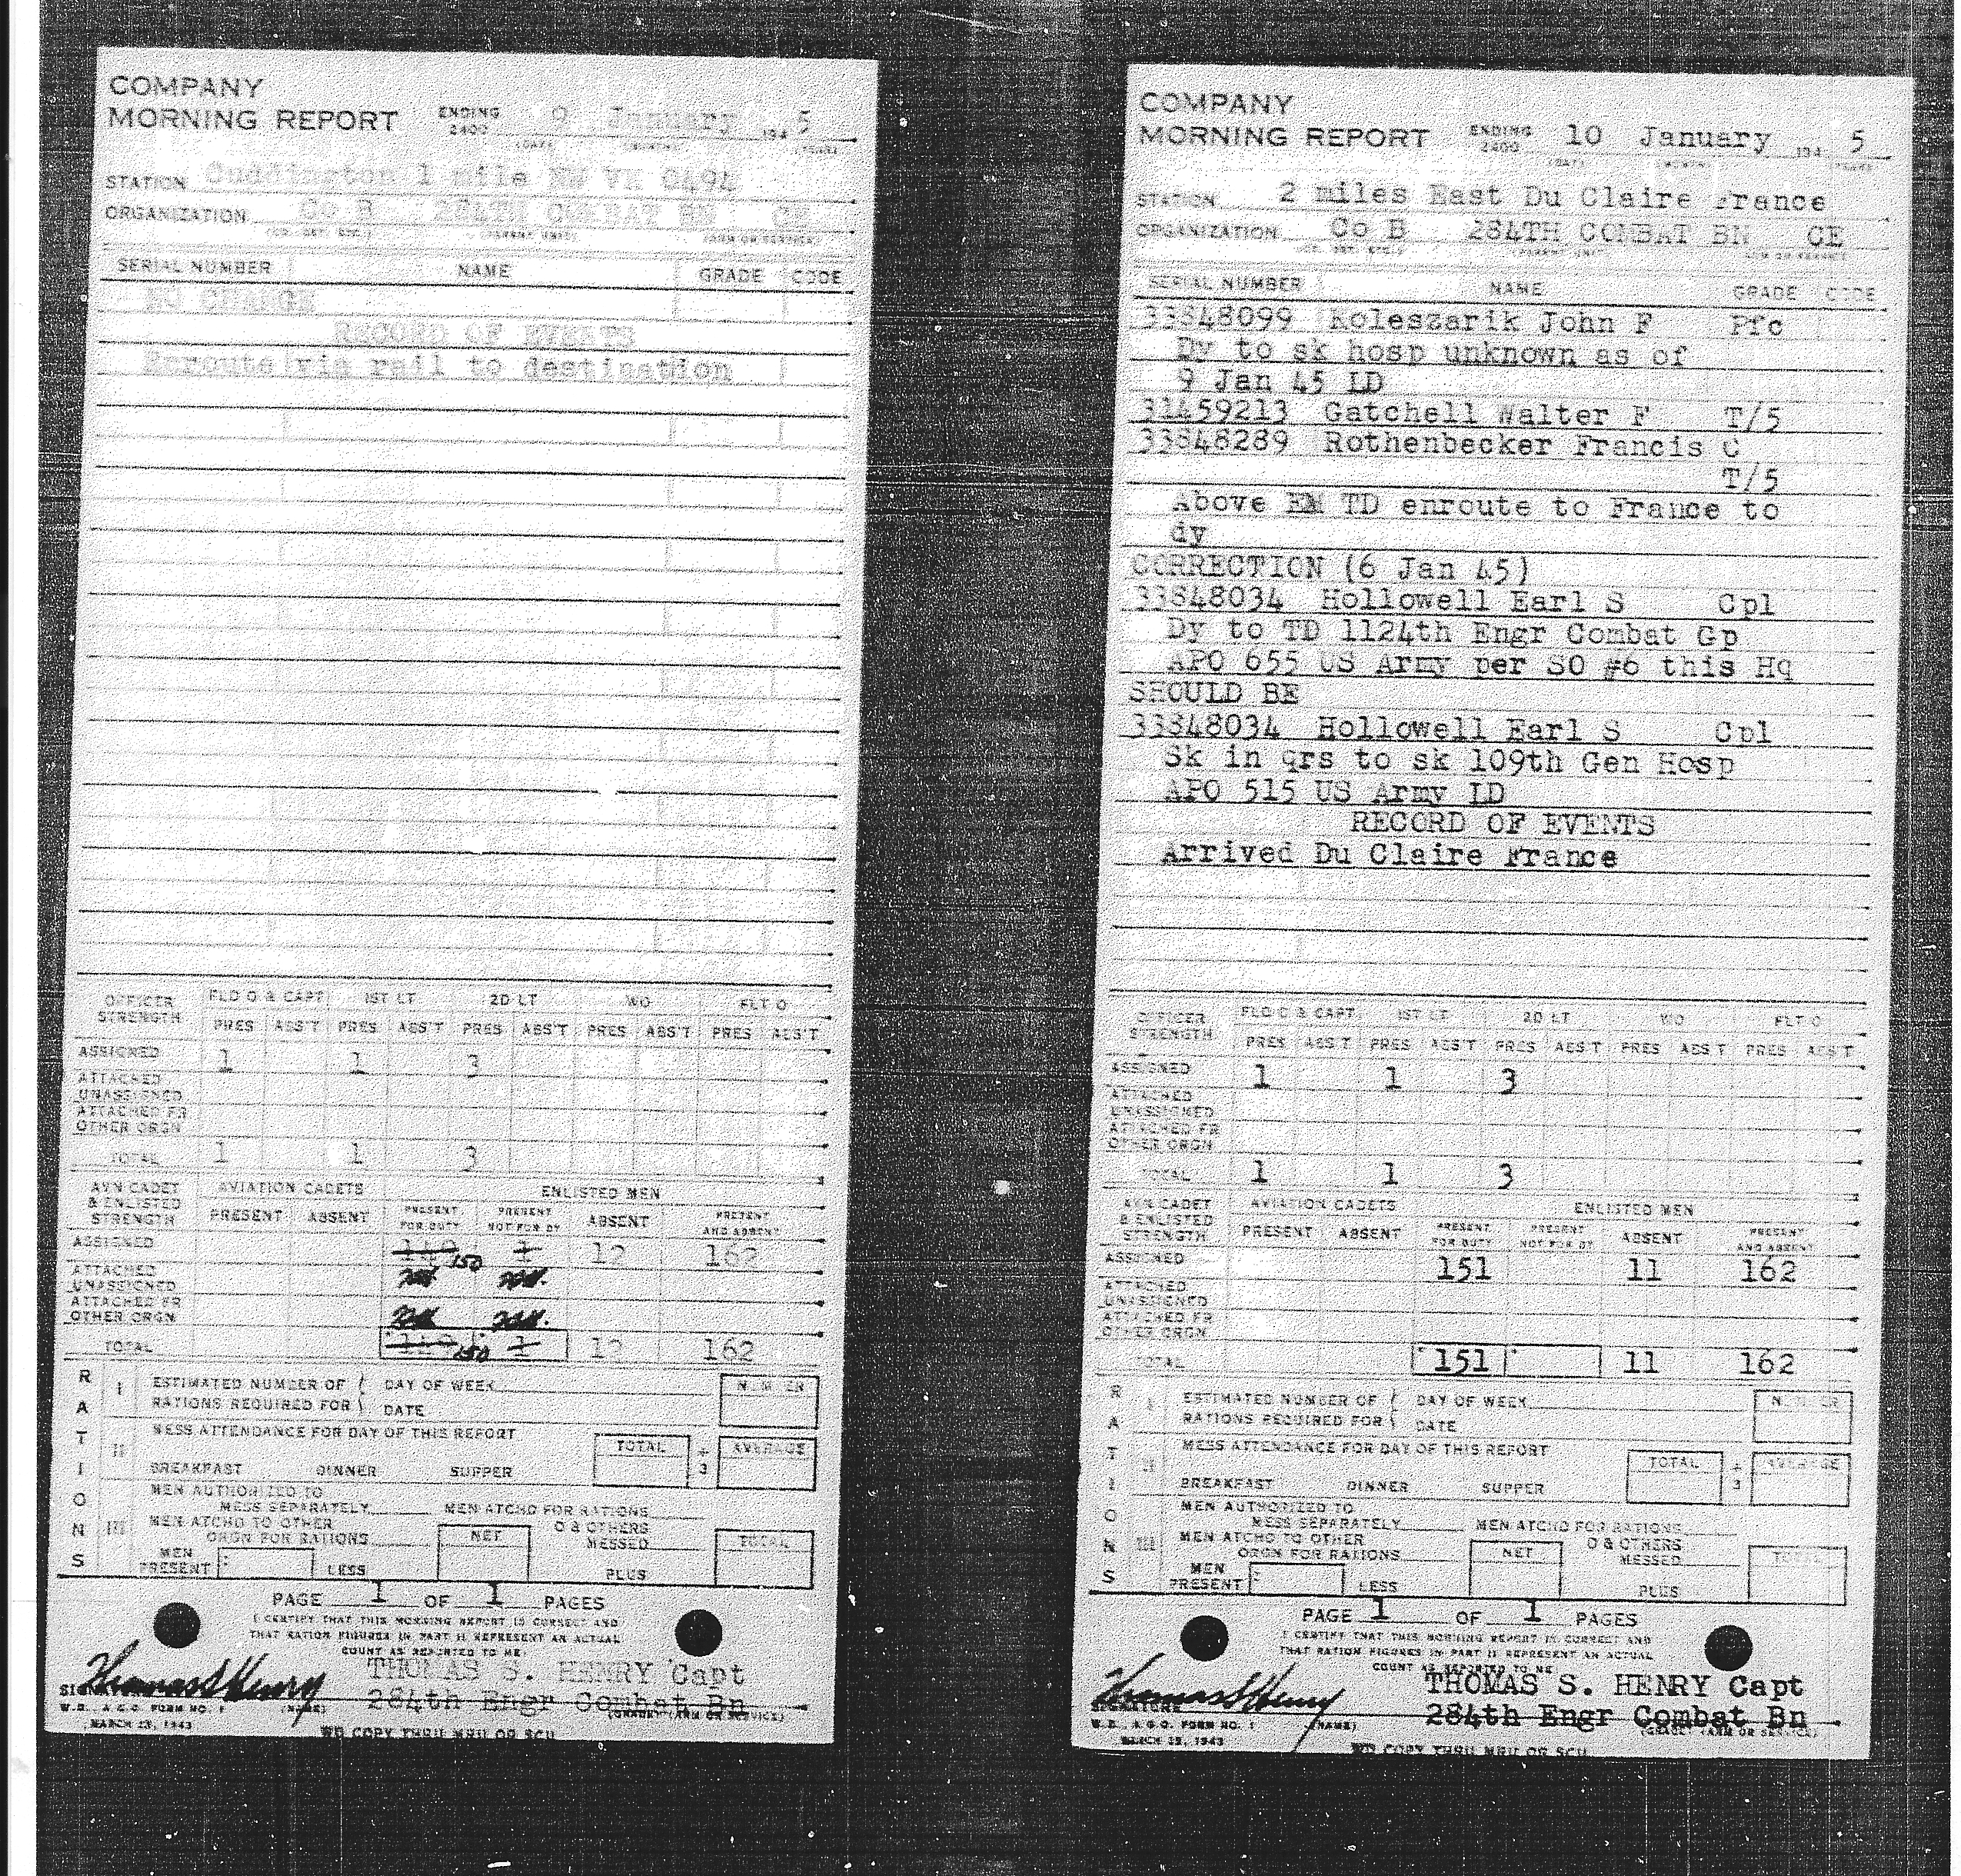 COMPANY
MORNING REPORT ENDING 2400 9 January 194 5
(DAY) (MONTH) (YEAR)
STATION Cuddington 1 mile NW VH 0494
ORGANIZATION Co B 284TH COMBAT BN CE
(CO. DET. ETC.) (PARENT UNIT) (ARM OR SERVICE)
SERIAL NUMBER NAME GRADE CODE
NO CHANGE
RECORD OF EVENTS
Enroute via rail to destination
OFFICER STRENGTH FLD O & CAPT 1ST LT 2D LT WO FLT O
PRES ABS'T PRES ABS'T PRES ABS'T PRES ABS'T PRES ABS'T
ASSIGNED 1 1 3
ATTACHED UNASSIGNED
ATTACHED FR OTHER ORGN
TOTAL 1 1 3
AVN CADET & ENLISTED STRENGTH AVIATION CADETS ENLISTED MEN
PRESENT ABSENT PRESENT FOR DUTY PRESENT NOT FOR DY ABSENT PRESENT AND ABSENT
ASSIGNED 150 1 12 162
ATTACHED UNASSIGNED
ATTACHED FR OTHER ORGN
TOTAL 150 1 12 162
RATIONS
I ESTIMATED NUMBER OF DAY OF WEEK NUMBER
RATIONS REQUIRED FOR DATE
II MESS ATTENDANCE FOR DAY OF THIS REPORT TOTAL ÷ 3 AVERAGE
BREAKFAST DINNER SUPPER
III MEN AUTHORIZED TO
MESS SEPARATELY MEN ATCHD FOR RATIONS
MEN ATCHD TO OTHER ORGN FOR RATIONS NET O & OTHERS MESSED TOTAL
MEN PRESENT LESS PLUS
PAGE 1 OF 1 PAGES
I CERTIFY THAT THIS MORNING REPORT IS CORRECT AND
THAT RATION FIGURES IN PART II REPRESENT AN ACTUAL
COUNT AS REPORTED TO ME:
Thomas S Henry THOMAS S. HENRY Capt
SIGNATURE 284th Engr Combat Bn
W.D., A.G.O. FORM NO. 1 (NAME) (GRADE) (ARM OR SERVICE)
MARCH 23, 1943
WD COPY THRU MRU OR SCU
COMPANY
MORNING REPORT ENDING 2400 10 January 194 5
(DAY) (MONTH) (YEAR)
STATION 2 miles East Du Claire France
ORGANIZATION Co B 284TH COMBAT BN CE
(CO. DET. ETC.) (PARENT UNIT) (ARM OR SERVICE)
SERIAL NUMBER NAME GRADE CODE
33848099 Koleszarik John F Pfc
Dy to sk hosp unknown as of
9 Jan 45 LD
31459213 Gatchell Walter F T/5
33848289 Rothenbecker Francis C
T/5
Above EM TD enroute to France to
dy
CORRECTION (6 Jan 45)
33848034 Hollowell Earl S Cpl
Dy to TD 1124th Engr Combat Gp
APO 655 US Army per SO #6 this Hq
SHOULD BE
33848034 Hollowell Earl S Cpl
Sk in qrs to sk 109th Gen Hosp
APO 515 US Army LD
RECORD OF EVENTS
Arrived Du Claire France
OFFICER STRENGTH FLD O & CAPT 1ST LT 2D LT WO FLT O
PRES ABS'T PRES ABS'T PRES ABS'T PRES ABS'T PRES ABS'T
ASSIGNED 1 1 3
ATTACHED UNASSIGNED
ATTACHED FR OTHER ORGN
TOTAL 1 1 3
AVN CADET & ENLISTED STRENGTH AVIATION CADETS ENLISTED MEN
PRESENT ABSENT PRESENT FOR DUTY PRESENT NOT FOR DY ABSENT PRESENT AND ABSENT
ASSIGNED 151 11 162
ATTACHED UNASSIGNED
ATTACHED FR OTHER ORGN
TOTAL 151 11 162
RATIONS
I ESTIMATED NUMBER OF DAY OF WEEK NUMBER
RATIONS REQUIRED FOR DATE
II MESS ATTENDANCE FOR DAY OF THIS REPORT TOTAL ÷ 3 AVERAGE
BREAKFAST DINNER SUPPER
III MEN AUTHORIZED TO
MESS SEPARATELY MEN ATCHD FOR RATIONS
MEN ATCHD TO OTHER ORGN FOR RATIONS NET O & OTHERS MESSED TOTAL
MEN PRESENT LESS PLUS
PAGE 1 OF 1 PAGES
I CERTIFY THAT THIS MORNING REPORT IS CORRECT AND
THAT RATION FIGURES IN PART II REPRESENT AN ACTUAL
COUNT AS REPORTED TO ME
Thomas S Henry THOMAS S. HENRY Capt
SIGNATURE 284th Engr Combat Bn
W.D., A.G.O. FORM NO. 1 (NAME) (GRADE) (ARM OR SERVICE)
MARCH 23, 1943
WD COPY THRU MRU OR SCU